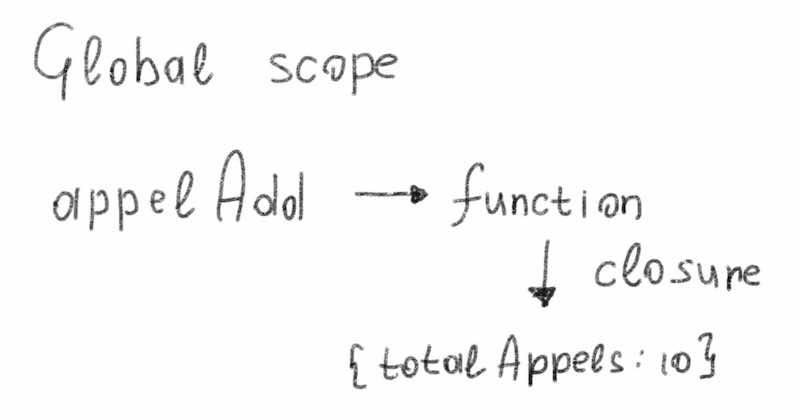 Global scope
appelAdd → function
closure
{totalAppels: 10}